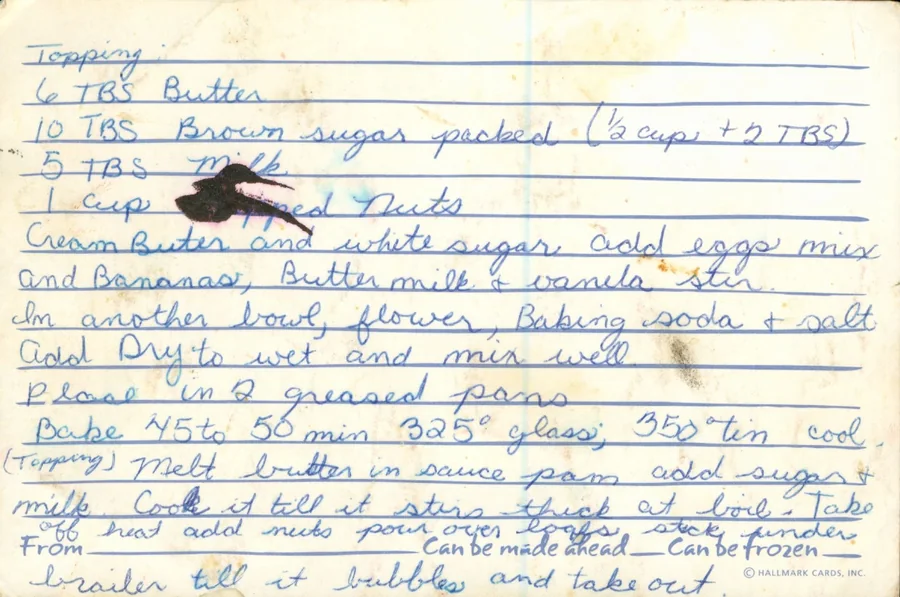 Topping:
6 TBS Butter
10 TBS Brown sugar packed (1/2 cup + 2 TBS)
5 TBS Milk
1 cup Nuts
Cream Buter and white sugar add eggs mix
and Bananas, Butter milk & vanela stir.
In another bowl, flower, Baking soda & salt
add Dry to wet and mix well.
Plase in 2 greased pans
Bake 45 to 50 min 325° glass; 350° tin cool.
(Topping) Melt butter in sauce pan add sugar &
milk. Cook it till it stirs thick at boil. Take
off heat add nuts pour over loafs stick under
From Can be made ahead Can be frozen
© HALLMARK CARDS, INC.
brailer till it bubbles and take out.